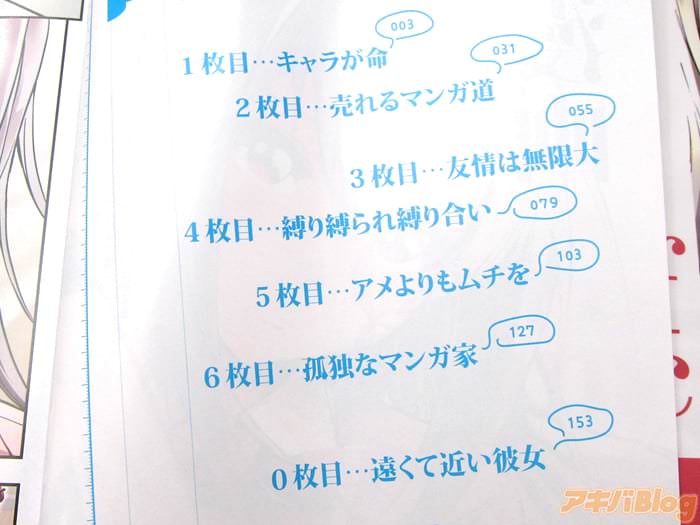 003
1枚目…キャラが命
031
2枚目…売れるマンガ道
055
3枚目…友情は無限大
4枚目…縛り縛られ縛り合い 079
5枚目…アメよりもムチを 103
6枚目…孤独なマンガ家 127
153
0枚目…遠くて近い彼女
アキバBlog